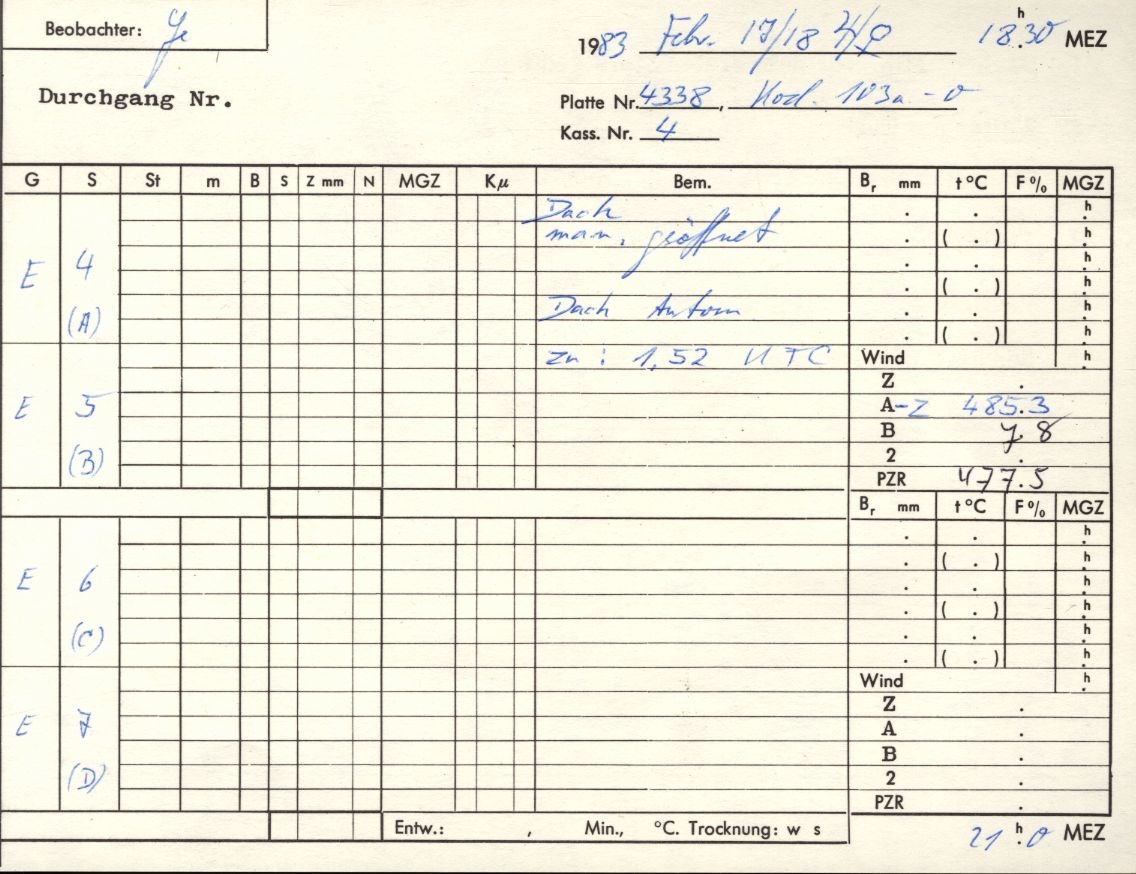 Beobachter: Je
1983 Febr. 17/18 ♃/♀ 18.30 h MEZ
Durchgang Nr.
Platte Nr. 4338, Kod. 103a-O
Kass. Nr. 4
G S St m B S Z mm N MGZ Kμ Bem. Br mm t °C F% MGZ
Dach . . h
man. geöffnet . ( . ) h
E 4 . . h
. ( . ) h
(A) Dach Autom . . h
. ( . ) h
zu : 1,52 UTC Wind h
Z .
E 5 A-Z 485.3
B 7.8
(B) 2 .
PZR 477.5
Br mm t °C F% MGZ
. . h
. ( . ) h
E 6 . . h
. ( . ) h
(C) . . h
. ( . ) h
Wind h
Z .
E 7 A .
B .
(D) 2 .
PZR .
Entw.: , Min., °C. Trocknung: w s
21 h.0 MEZ